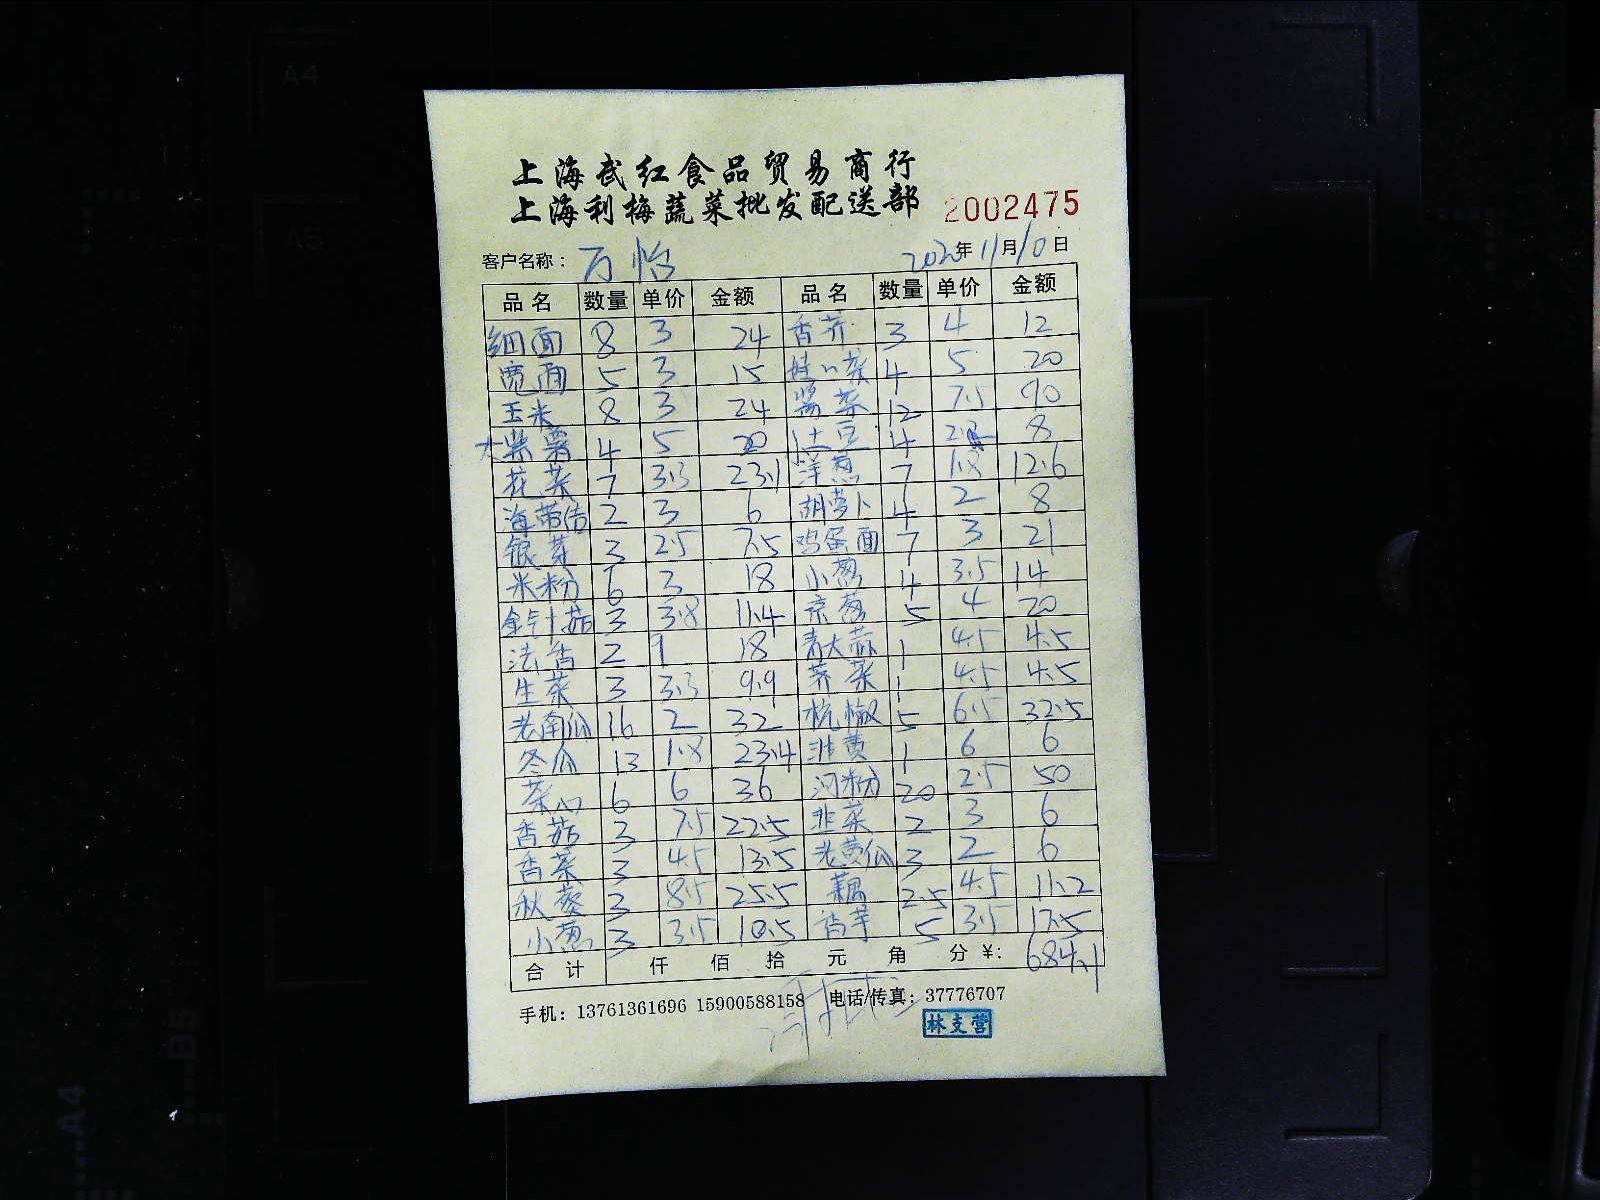 上海武红食品贸易商行
上海利梅蔬菜批发配送部 2002475
客户名称： 万怡 2020年11月10日
品名 数量 单价 金额 品名 数量 单价 金额
细面 8 3 24 香芹 3 4 12
宽面 5 3 15 娃娃菜 4 5 20
玉米 8 3 24 酱菜 12 7.5 90
大紫薯 4 5 20 土豆 4 8
花菜 7 3.3 23.1 洋葱 7 1.8 12.6
海带结 2 3 6 胡萝卜 4 2 8
银芽 3 2.5 7.5 鸡蛋面 7 3 21
米粉 6 3 18 小葱 4 3.5 14
金针菇 3 3.8 11.4 京葱 5 4 20
法香 2 9 18 青大蒜 1 4.5 4.5
生菜 3 3.3 9.9 荠菜 1 4.5 4.5
老南瓜 16 2 32 杭椒 5 6.5 32.5
冬瓜 13 1.8 23.4 韭黄 1 6 6
菜心 6 6 36 河粉 20 2.5 50
香菇 3 7.5 22.5 韭菜 2 3 6
香菜 3 4.5 13.5 老黄瓜 3 2 6
秋葵 3 8.5 25.5 藕 2.5 4.5 11.2
小葱 3 3.5 10.5 香芋 5 3.5 17.5
合计 仟 佰 拾 元 角 分 ¥: 684.1
手机：13761361696 15900588158 电话/传真：37776707
林支营
A4
A5
B5
A4